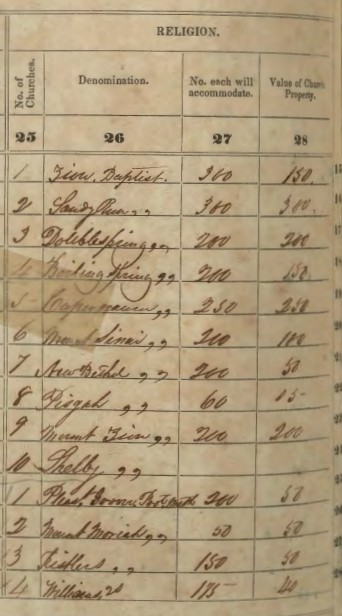 RELIGION.
No. of Churches. Denomination. No. each will accommodate. Value of Church Property.
25 26 27 28
1 Zion Baptist. 300 150.
2 Sandy Run ,, 300 300.
3 Dobblespring ,, 200 200
4 Boiling Spring ,, 200 150
5 ,, 250 250
6 Mount Sinai ,, 200 100
7 New Bethel ,, 200 50
8 Pisgah ,, 60 15
9 Mount Zion ,, 200 200
10 Shelby ,,
1 Pleas. Grove 200 50
2 Mount Moriah ,, 50 50
3 Kistlers ,, 150 50
4 Williams 175 40